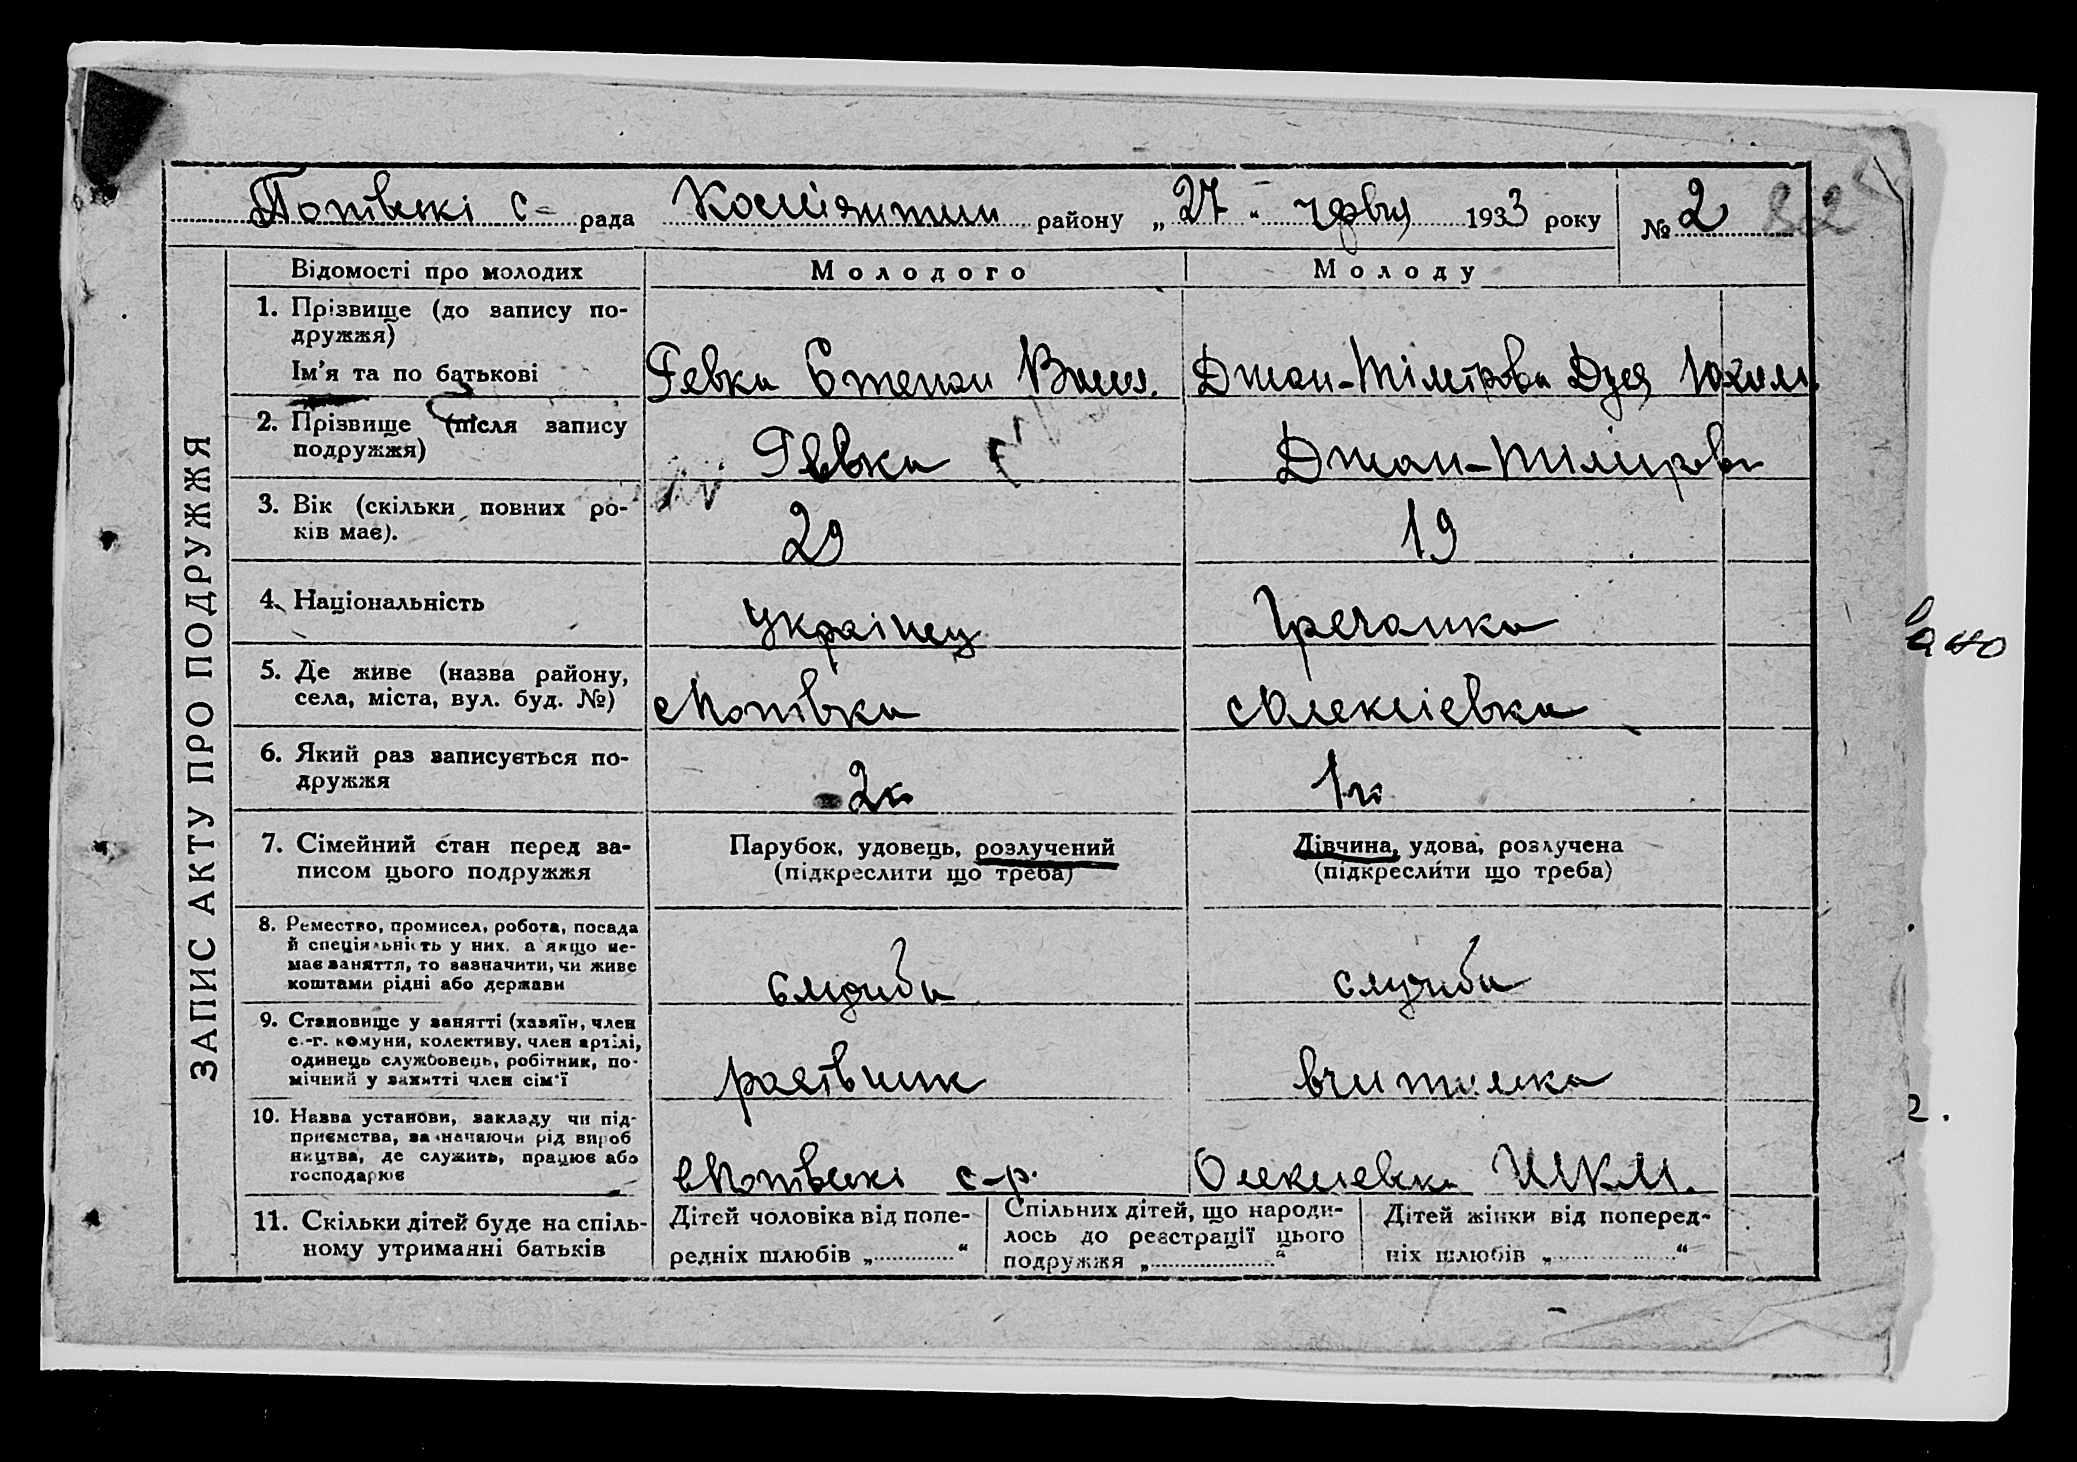 Попівськ с- рада району „ 27 “ червня 1933 року № 2
ЗАПИС АКТУ ПРО ПОДРУЖЖЯ
Відомості про молодих Молодого Молоду
1. Прізвище (до запису по-
дружжя)
Ім'я та по батькові
Ревка Степан Васил. Джан-Тімірова Юхим.
2. Прізвище (після запису
подружжя)
Ревка Джан-Тімірова
3. Вік (скільки повних ро-
ків має).
29 19
4. Національність українец Гречанка
5. Де живе (назва району,
села, міста, вул. буд. №)
с Попівка с Олексіевка
6. Який раз записується по-
дружжя
2й 1й
7. Сімейний стан перед за-
писом цього подружжя
Парубок, удовець, розлучений
(підкреслити що треба)
Дівчина, удова, розлучена
(підкреслити що треба)
8. Ремество, промисел, робота, посада
й спеціяльність у них, а якщо не-
має заняття, то зазначити, чи живе
коштами рідні або держави
служба служба
9. Становище у занятті (хазяїн, член
с.-г. комуни, колективу, член артілі,
одинець службовець, робітник, по-
мічний у занятті член сім'ї
вчителка
10. Назва установи, закладу чи під-
приємства, зазначаючи рід вироб
ництва, де служить, працює або
господарює
с-р. Олексіевка ШКМ.
11. Скільки дітей буде на спіль-
ному утриманні батьків
Дітей чоловіка від попе-
редніх шлюбів „ “
Спільних дітей, що народи-
лось до реєстрації цього
подружжя „ “
Дітей жінки від поперед-
ніх шлюбів „ “